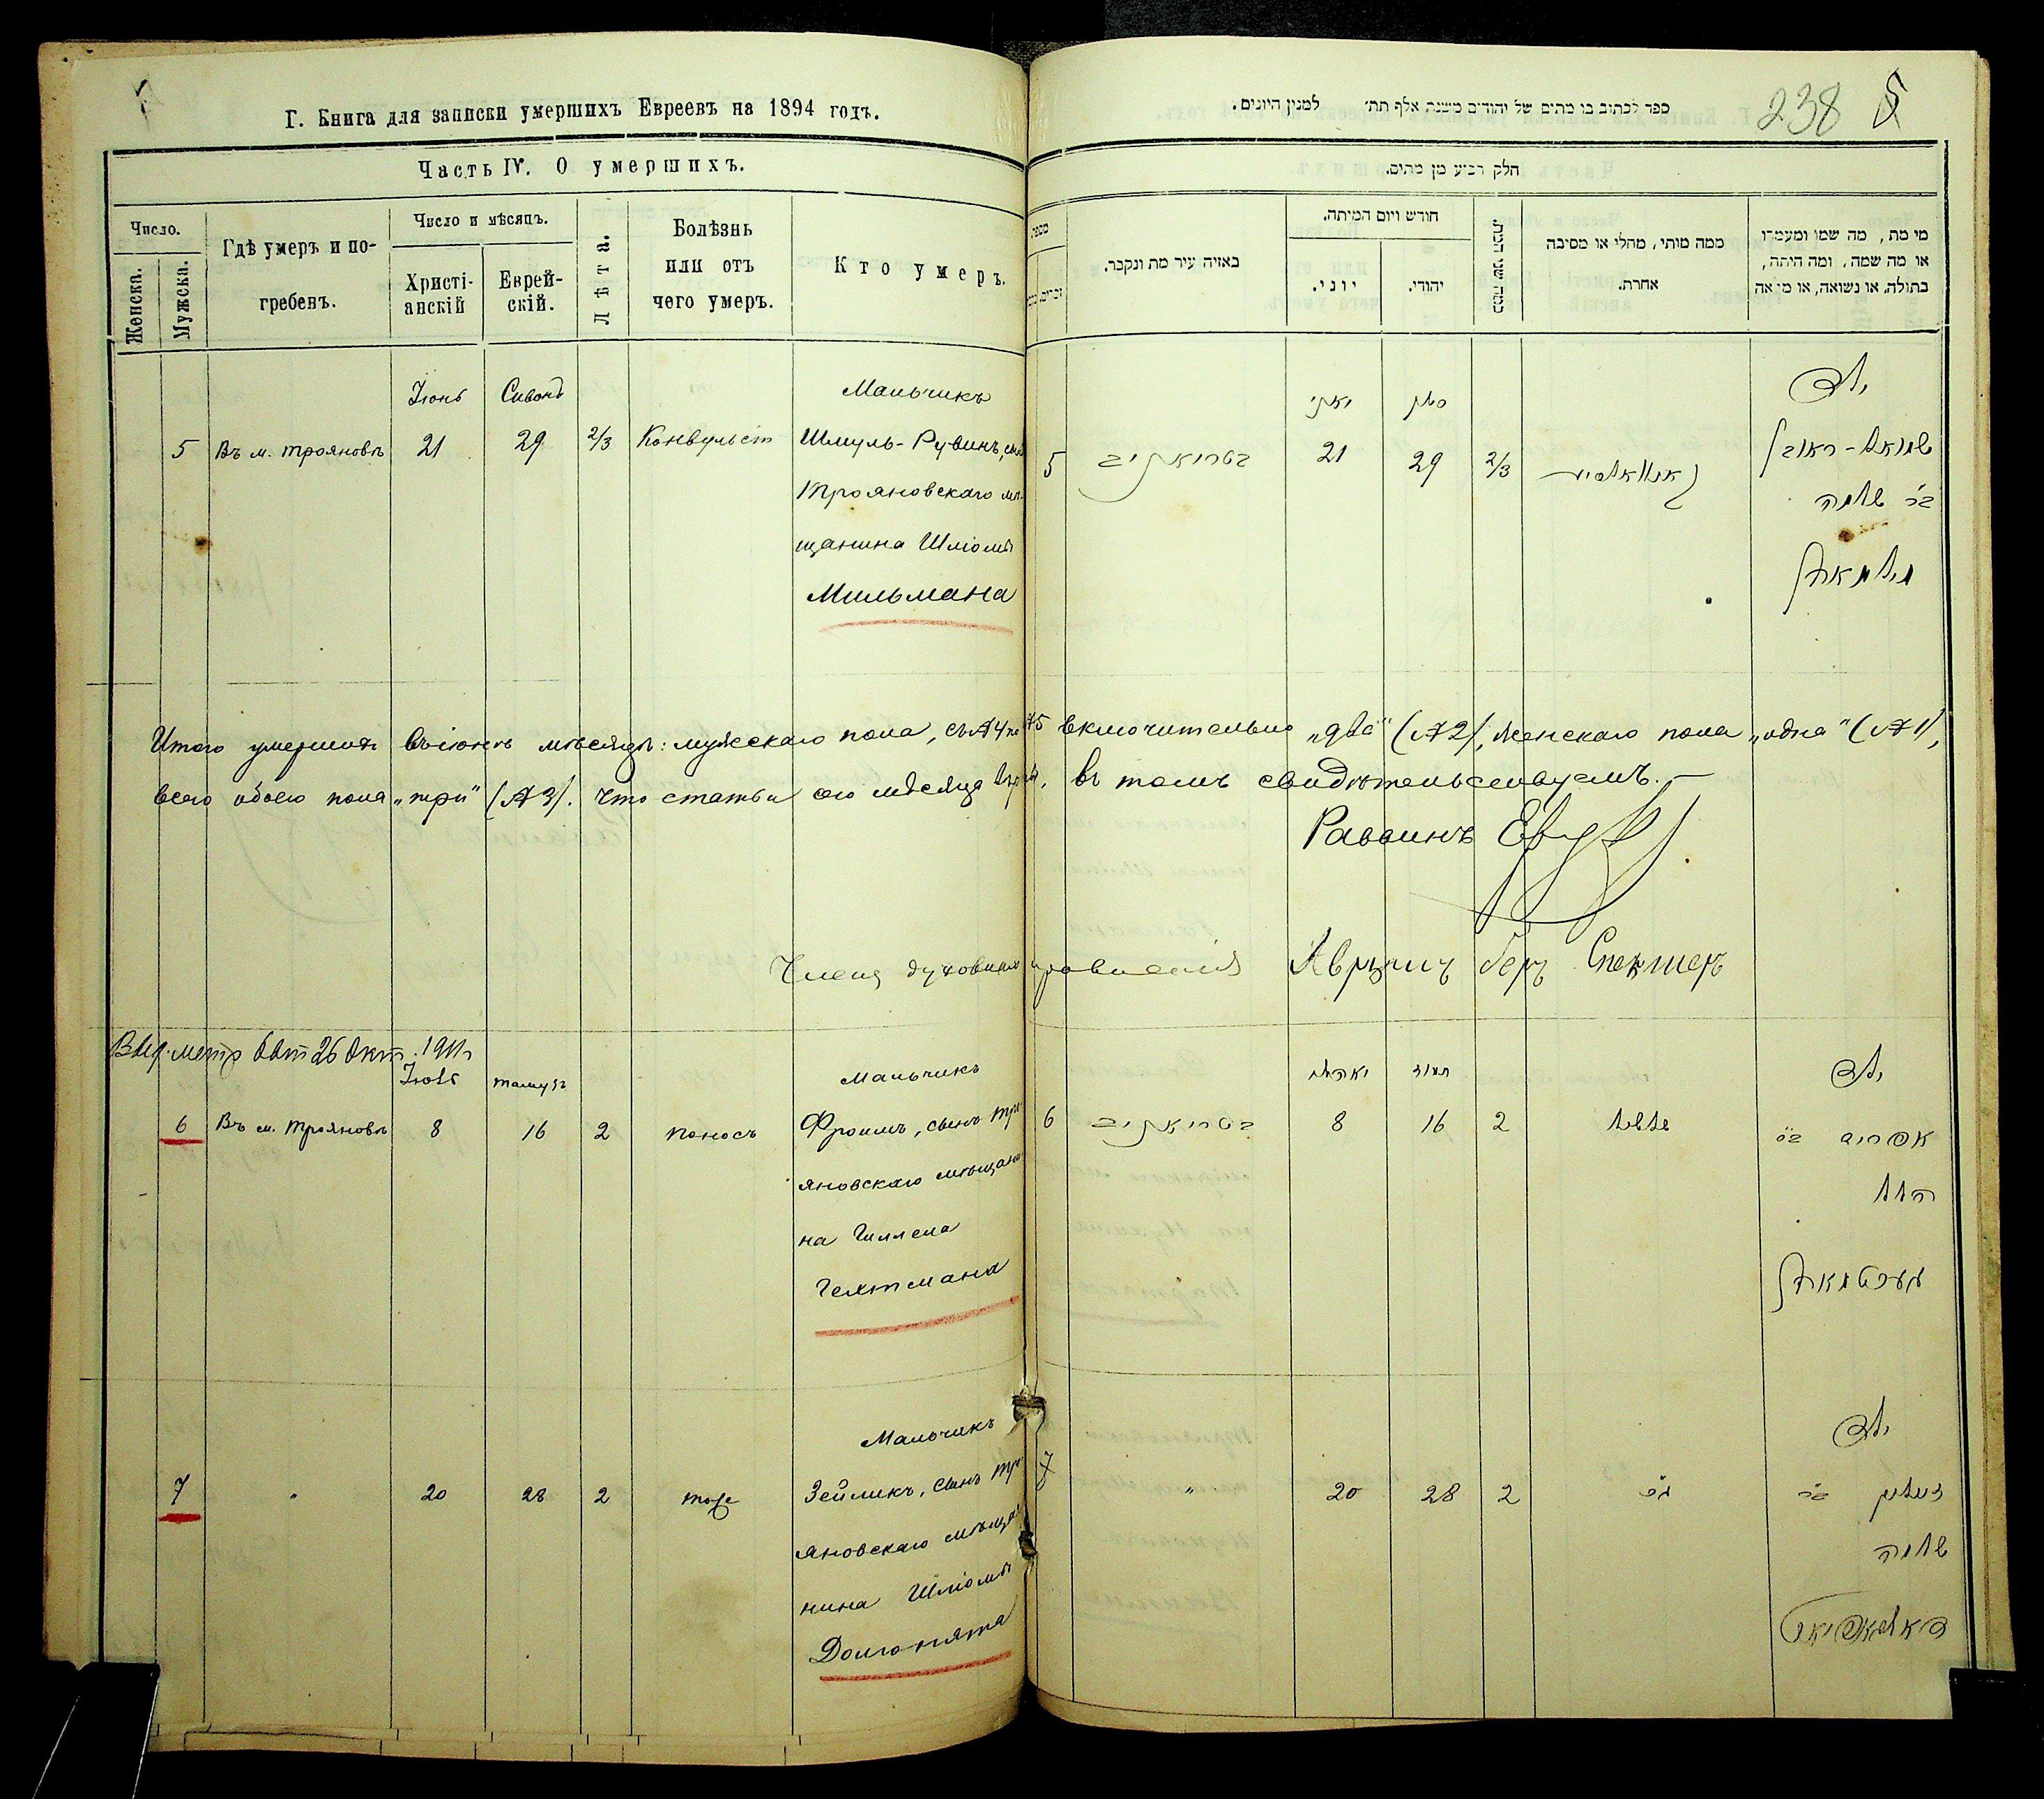 Г. Книга для записки умершихъ Евреевъ на 1894 годъ.
Часть IV. О умершихъ.
Число.
Женска.
Мужска.
Гдѣ умеръ и по-
гребенъ.
Число и мѣсяцъ.
Христі-
анскій
Еврей-
скій.
Лѣта.
Болѣзнь
или отъ
чего умеръ.
Кто умеръ.
Іюнь Сивонъ Мальчикъ
5 Въ м. Трояновѣ 21 29 2/3 Конвульсіи Шмуль-Рувинъ, сынъ
Трояновскаго мѣ-
щанина Шліомы
Мильмана
Итого умершихъ въ іюнѣ мѣсяцѣ: мужскаго пола, съ №4 по №5 включительно „два" (№2), женскаго пола „одна" (№1),
всего обоего пола „три" (№3). Что статьи сего мѣсяца вѣрны, въ томъ свидѣтельствуемъ.-
Раввинъ
Членъ духовнаго правленія Аврумъ Беръ Спекторъ
Выд. метр 26 Окт. 1911г
Іюль тамузъ Мальчикъ
6 Въ м. Трояновѣ 8 16 2 поносъ Фроимъ, сынъ Тро-
яновскаго мѣщани-
на Гиллела
Гехтмана
Мальчикъ
7 " 20 28 2 тоже Зейликъ, сынъ Тро-
яновскаго мѣща-
нина Шліомы
Долгопята
238 5
ספר לכתוב בו מתים של יהודים משנת אלף תת׳ למנין היונים.
חלק רביע מן מתים.
מספר
באיזה עיר מת ונקבר.
חודש ויום המיתה.
יוני.
יהודי.
כמה שני המת.
ממה מותי, מחלי או מסיבה
אחרת.
מי מת, מה שמו ומעמדו
או מה שמה, ומה היתה,
בתולה, או נשואה, או
יאני סיון ילד
5 בטריאניב 21 29 2/3 שמואל-ראובן
בר שלמה
מילמאן
תמוז ילד
6 בטריאניב 8 16 2 שלשול אפרים בר
הלל
געכטמאן
ילד
7 " 20 28 2 זעליג בר
שלמה